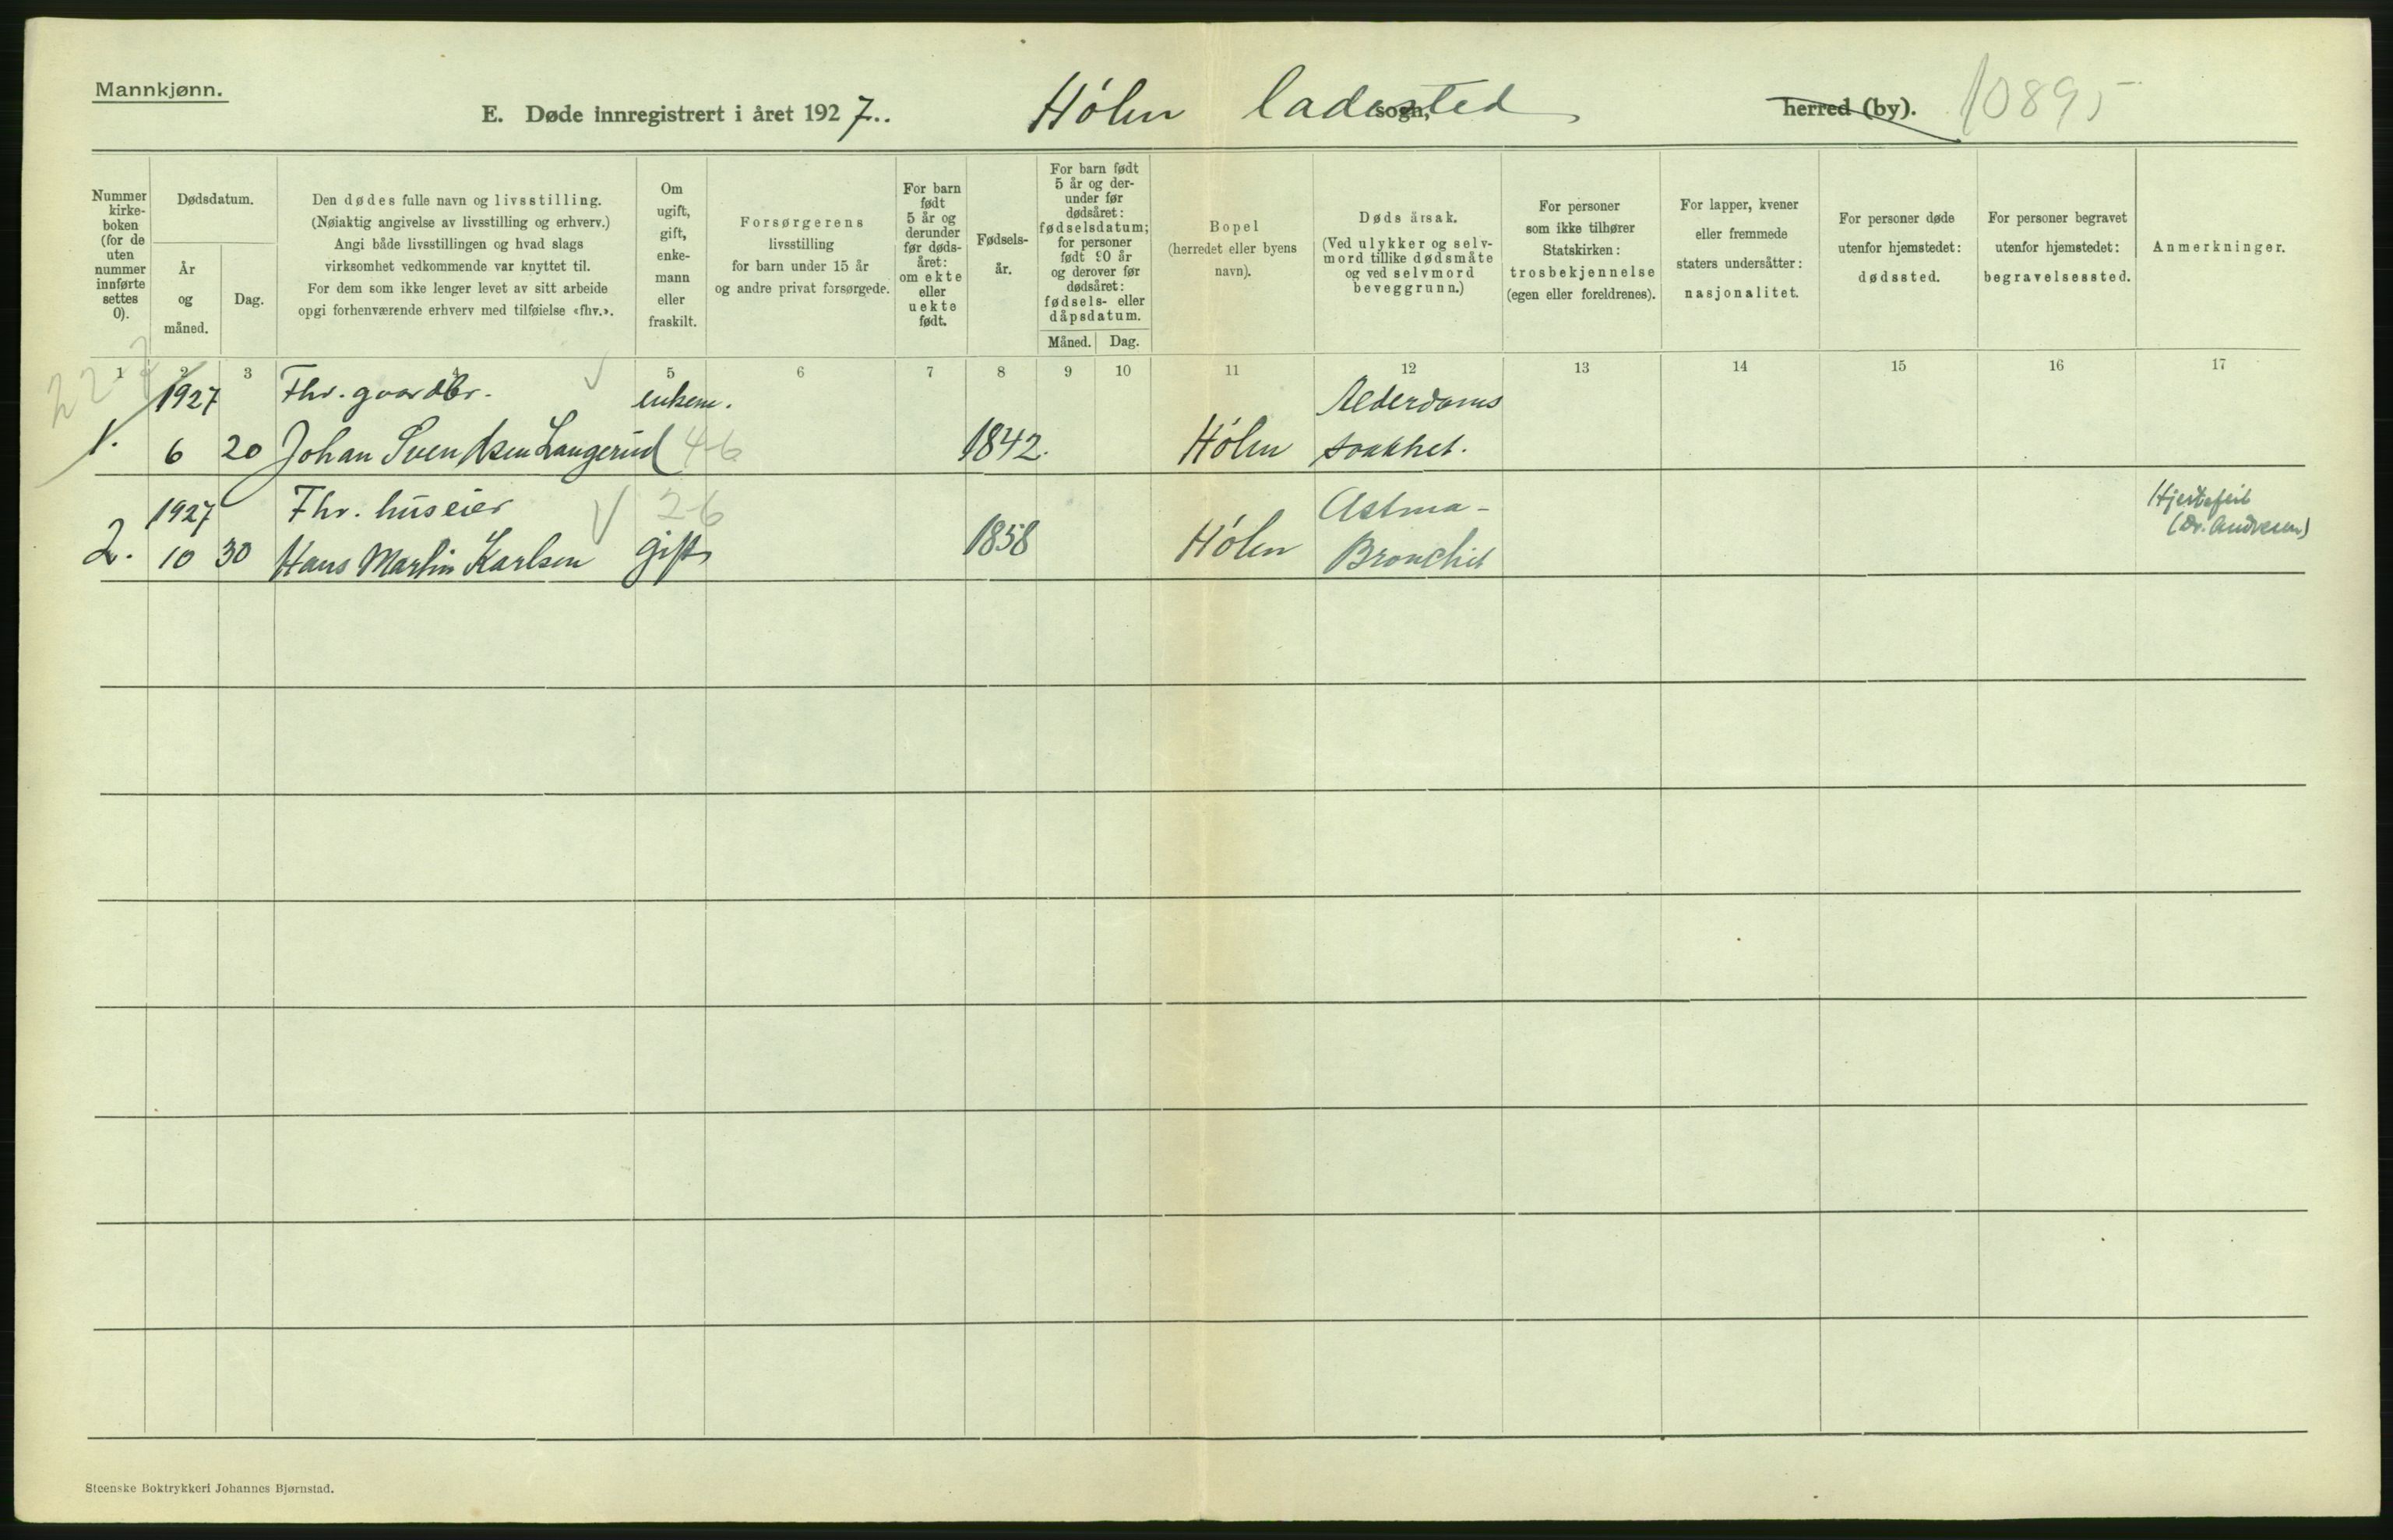 Mannkjønn.
E. Døde innregistrert i året 1927.. Hølen ladested sogn, herred (by). 10895
Nummer
kirke-
boken
(for de
uten
nummer
innførte
settes
0).
Dødsdatum.
År
og
måned.
Dag.
Den dødes fulle navn og livsstilling.
(Nøiaktig angivelse av livsstilling og erhverv.)
Angi både livsstillingen og hvad slags
virksomhet vedkommende var knyttet til.
For dem som ikke lenger levet av sitt arbeide
opgi forhenværende erhverv med tilføielse «fhv.».
Om
ugift,
gift,
enke-
mann
eller
fraskilt.
Forsørgerens
livsstilling
for barn under 15 år
og andre privat forsørgede.
For barn
født
5 år og
derunder
før døds-
året:
om ekte
eller
uekte
født.
Fødsels-
år.
For barn født
5 år og der-
under før
dødsåret:
fødselsdatum;
for personer
født 90 år
og derover før
dødsåret:
fødsels- eller
dåpsdatum.
Måned. Dag.
Bopel
(herredet eller byens
navn).
Dødsårsak.
(Ved ulykker og selv-
mord tillike dødsmåte
og ved selvmord
beveggrunn.)
For personer
som ikke tilhører
Statskirken:
trosbekjennelse
(egen eller foreldrenes).
For lapper, kvener
eller fremmede
staters undersåtter:
nasjonalitet.
For personer døde
utenfor hjemstedet:
dødssted.
For personer begravet
utenfor hjemstedet:
begravelsessted.
Anmerkninger.
1 2 3 4 5 6 7 8 9 10 11 12 13 14 15 16 17
1927 Fhv. gaardbr. enkem. Alderdoms
1. 6 20 Johan Svendsen Langerud 46 1842. Hølen svakhet.
1927 Fhv. huseier 26 Astma- Hjertefeil
2. 10 30 Hans Martin Karlsen gift 1858 Hølen Bronchit (Dr. Andresen)
Steenske Boktrykkeri Johannes Bjørnstad.